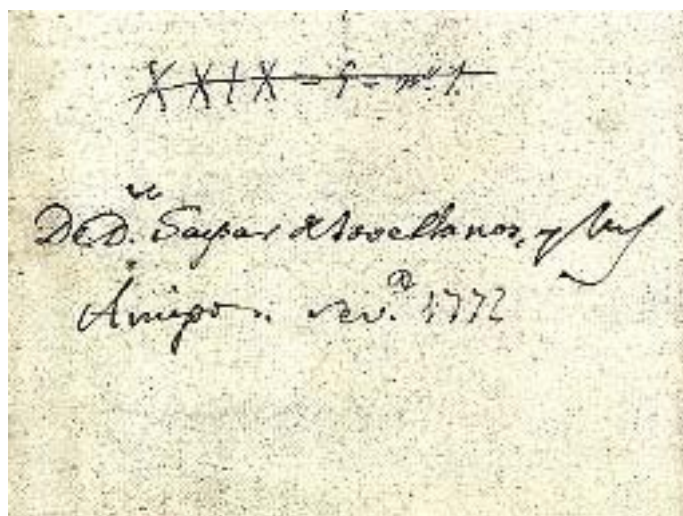 XXIX = f = nº 1.
De D. Gaspar de Jovellanos, y sus
Amigos. Sevª. 1772